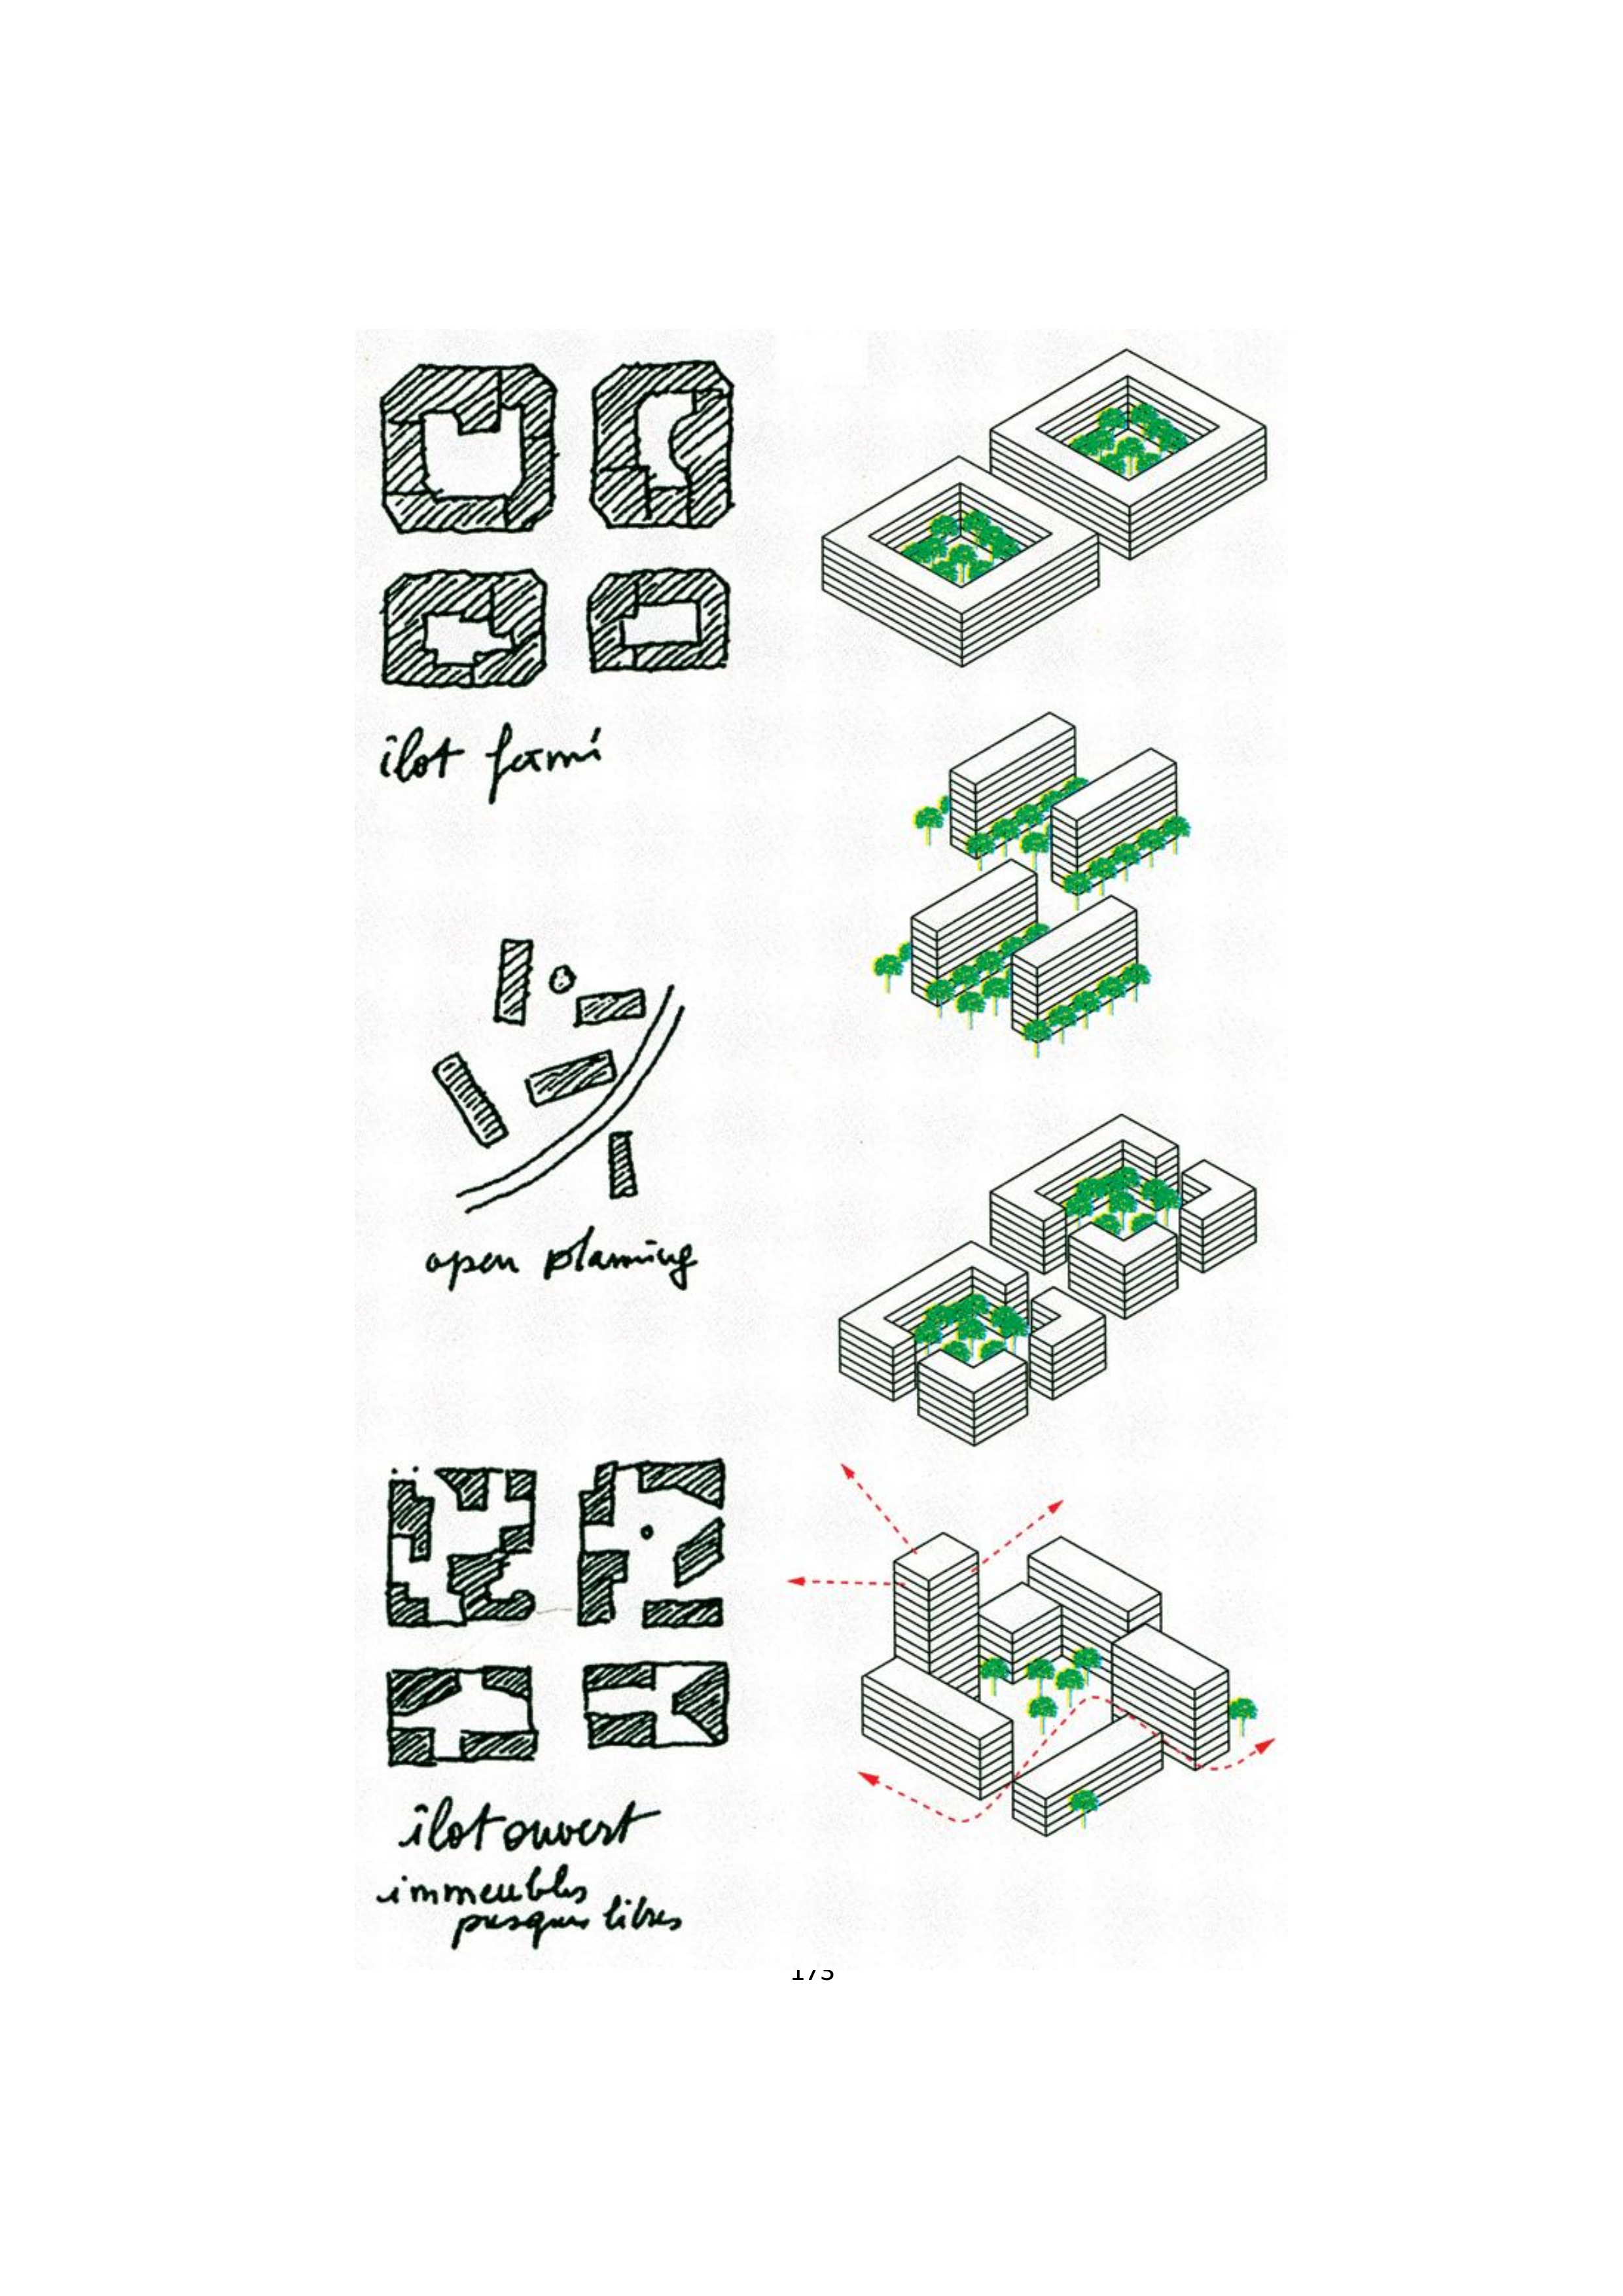 îlot fermé
open planning
îlot ouvert
immeubles
presque libres
173